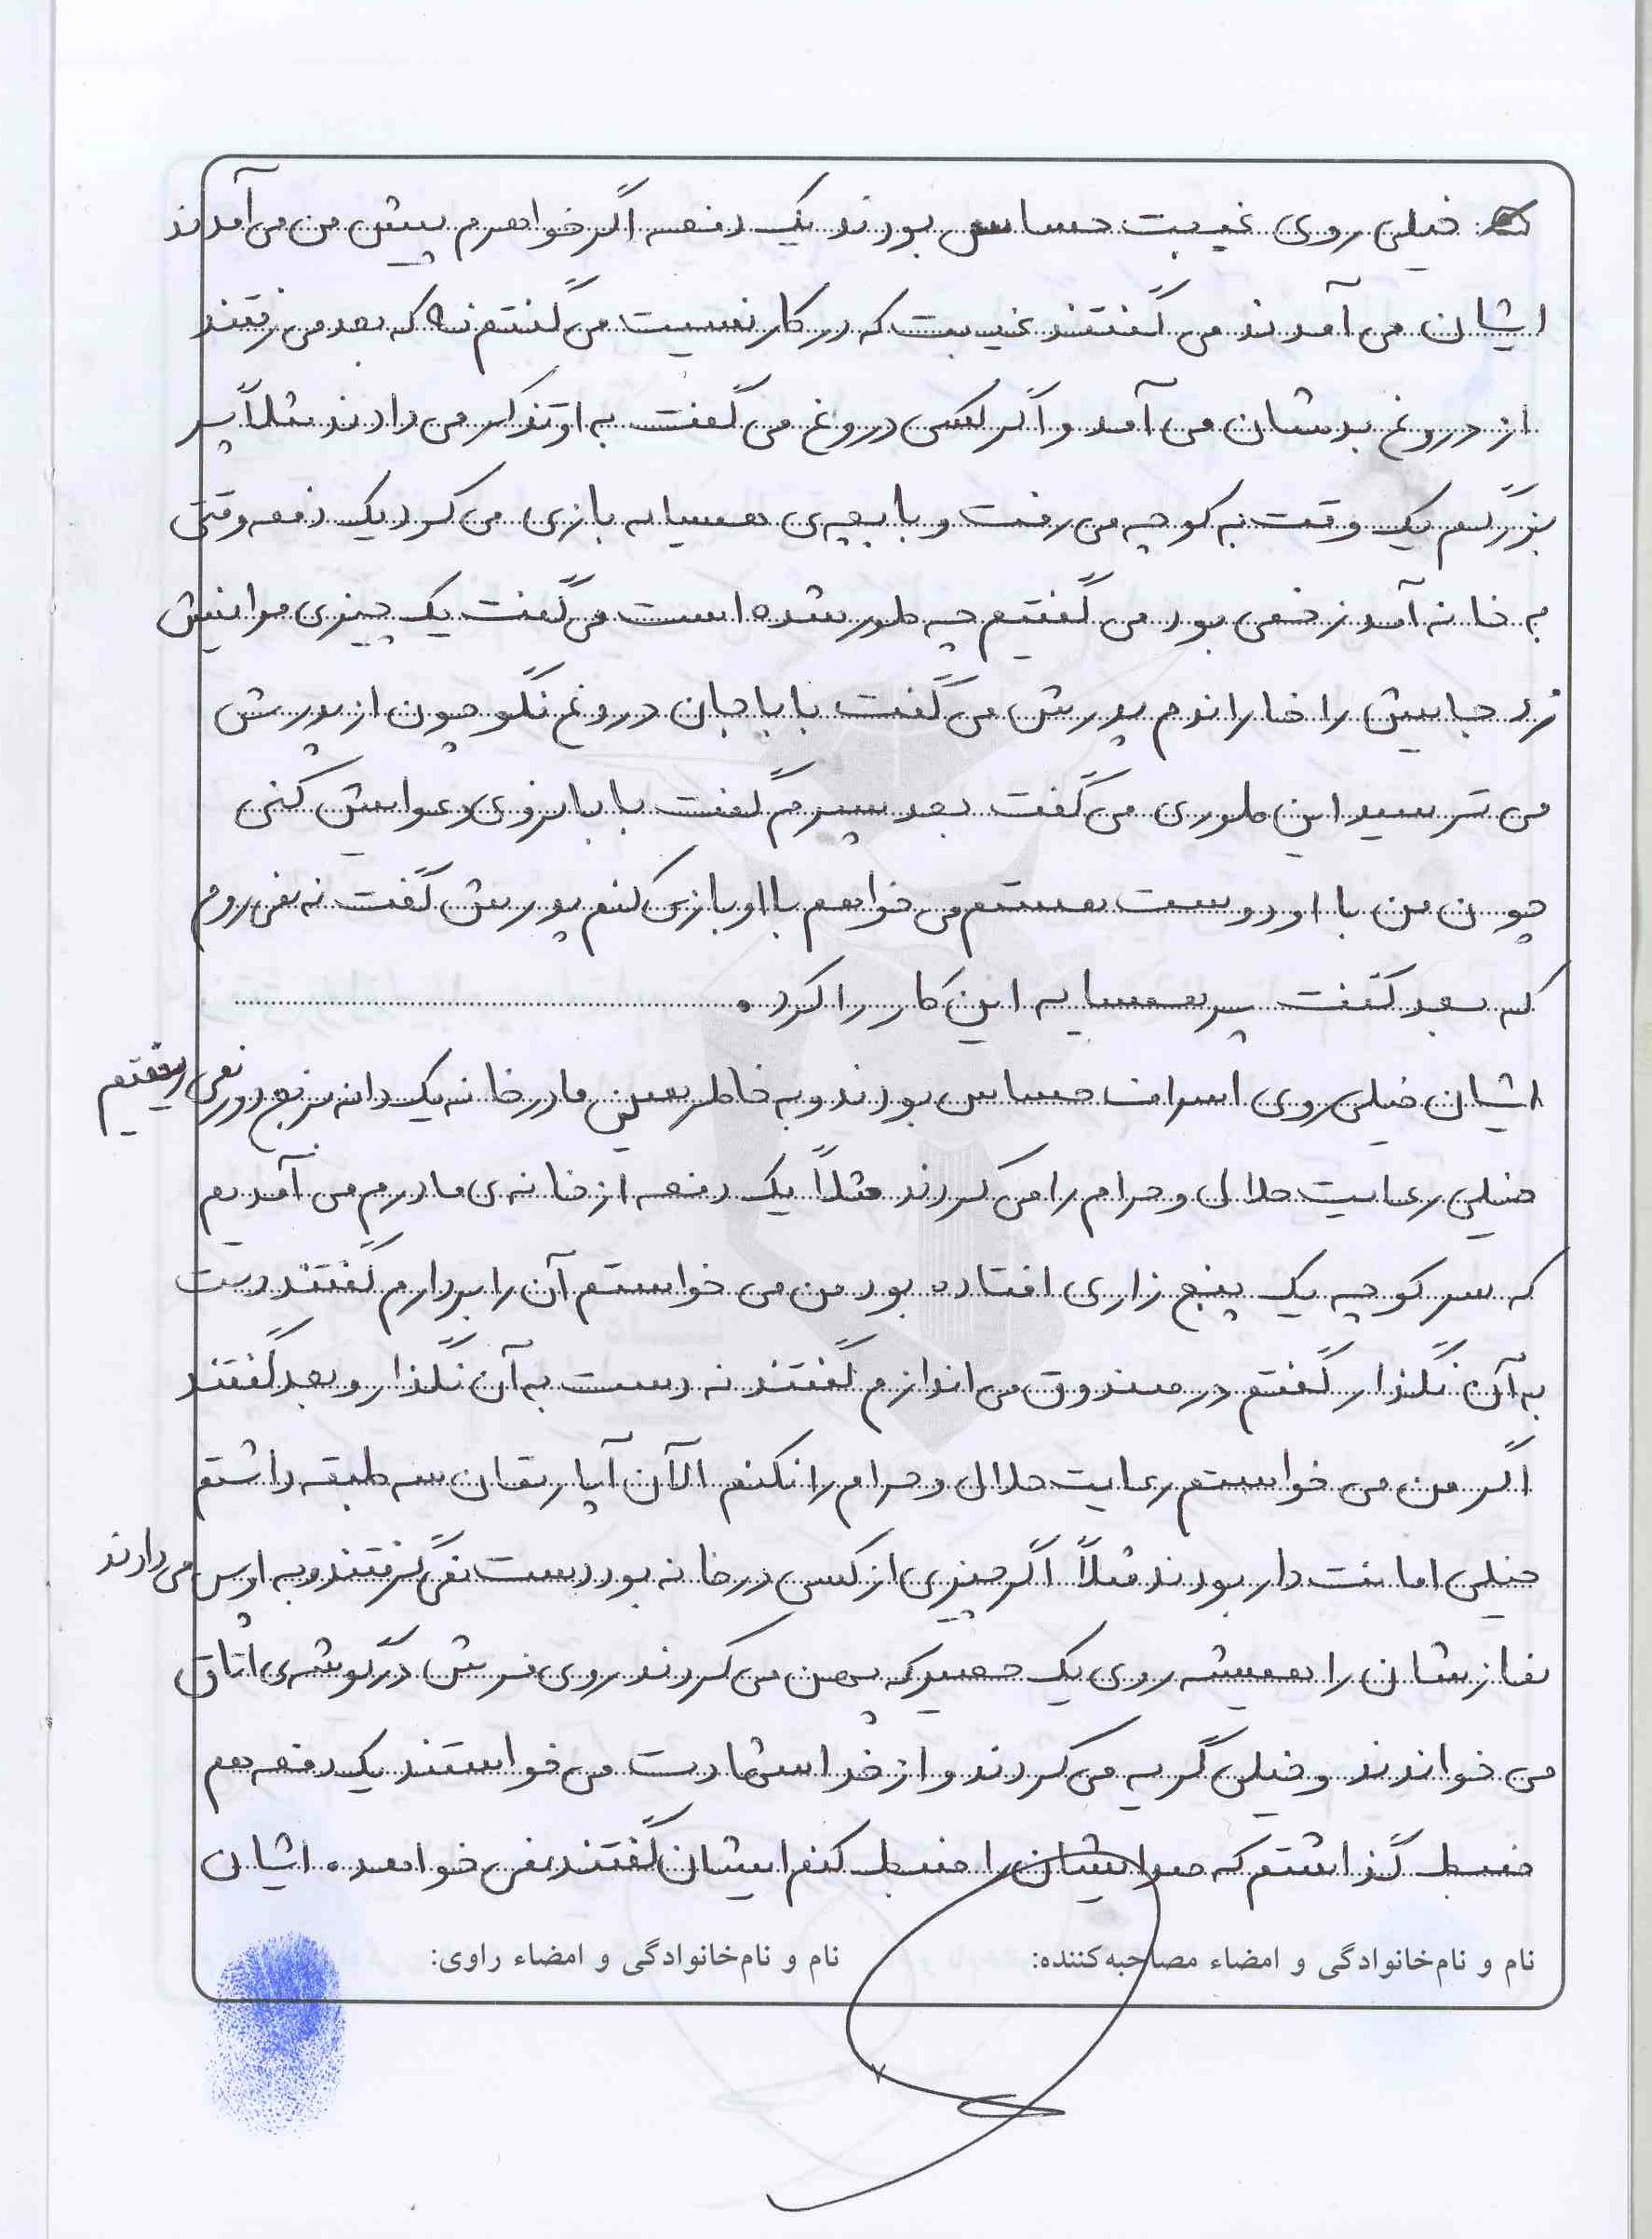 خیلی روی غیبت حساس بودند یک دفعه اگر خواهرم پیش من می آمدند
ایشان می آمدند می گفتند غیبت که در کار نسیت می گفتم نه که بعد می رفتند
از دروغ بدشان می آمد و اگر کسی دروغ می گفت به او تذکر می دادند مثلاً پسر
بزرگم یک وقت به کوچه می رفت و با بچه ی همسایه بازی می کرد یک دفعه وقتی
به خانه آمد زخمی بود می گفتیم چه طور شده است می گفت یک چیزی مرا نیش
زد جایش را خاراندم پدرش می گفت بابا جان دروغ نگو چون از پدرش
می ترسید این طوری می گفت بعد پسرم گفت بابا نروی دعوایش کنی
چون من با او دوست هستم می خواهم با او بازی کنم پدرش گفت نه نمی روم
که بعد گفت پسر همسایه این کار را کرد.
ایشان خیلی روی اسراف حساس بودند و به خاطر همین ما در خانه یک دانه برنج دور نمی ریختیم
خیلی رعایت حلال و حرام را می کردند مثلاً یک دفعه از خانه ی مادرم می آمدیم
که سر کوچه یک پنج زاری افتاده بود من می خواستم آن را بردارم گفتند دست
به آن نگذار گفتم در صندوق می اندازم گفتند نه دست به آن نگذار و بعد گفتند
اگر من می خواستم رعایت حلال و حرام را نکنم الآن آپارتمان سه طبقه داشتم
خیلی امانت دار بودند مثلاً اگر چیزی از کسی در خانه بود دست نمی گرفتند و به او پس می دادند
نمازشان را همیشه روی یک حصیر که پهن می کردند روی فرش در گوشه ی اتاق
می خواندند و خیلی گریه می کردند و از خدا شهادت می خواستند یک دفعه هم
ضبط گذاشتم که صدایشان را ضبط کنم ایشان گفتند نمی خواهد. ایشان
نام و نام‌خانوادگی و امضاء مصاحبه‌کننده: نام و نام‌خانوادگی و امضاء راوی:
۷